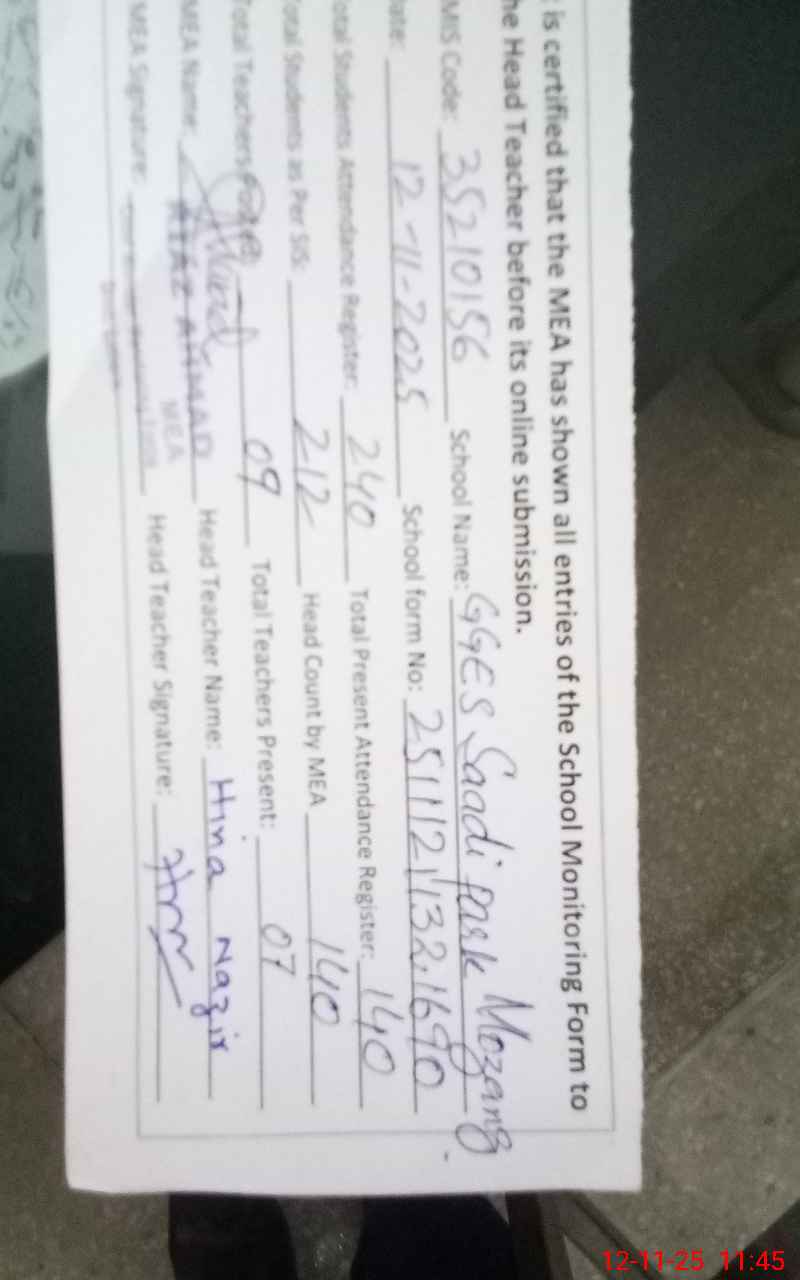 is certified that the MEA has shown all entries of the School Monitoring Form to
he Head Teacher before its online submission.
MIS Code: 35210156 School Name: GGES Saadi park Mozang.
ate: 12-11-2025 School form No: 2511121132.1690
otal Students Attendance Register: 240 Total Present Attendance Register: 140
otal Students as Per SIS: 212 Head Count by MEA 140
Total Teachers 09 Total Teachers Present: 07
MEA Name: AHMAD Head Teacher Name: Hina Nazir
MEA
MEA Signature: Head Teacher Signature:
12-11-25 11:45